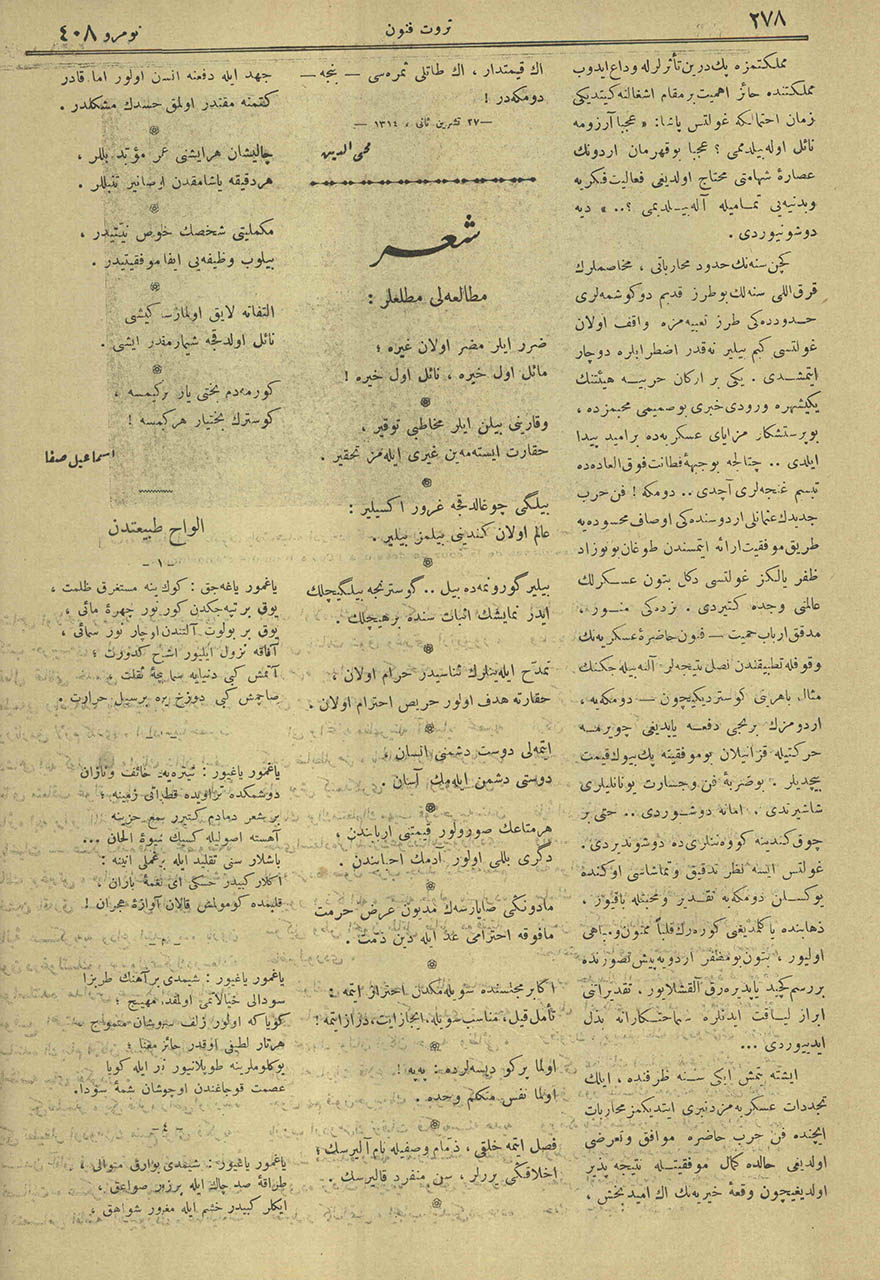 ٢٧٨
ثروت فنون
نومرو ٤٠٨
مملكتمزه پك درين تأثرلرله وداع ايدوب
مملكتنده حائز اهميت بر مقام اشغالنه كيتديكى
زمان احتمالكه غولتس پاشا: « عجبا آرزومه
نائل اوله بيلدممى ؟ عجبا بو قهرمان اردونك
عصارهٔ شهامتى محتاج اولديغى فعاليت فكريه
وبدنيه يى تماميله آله بيلديمى ؟.. » ديه
دوشونيوردى .
كچن سنه نك حدود محارباتى ، مخاصملرك
قرق اللى سنه لك بو طرز قديم دوكوشمه لرى
حدودده كى طرز تعبيه مزه واقف اولان
غولتسى كيم بيلير نه قدر اضطرابلره دوچار
ايتمشدى . يكى بر اركان حربيه هيئتنك
يكيشهره ورودى خبرى بو صميمى محبمزده ،
بو پرستشكار مزاياى عسكريه ده بر اميد پيدا
ايلدى .. چتالجه بو جبههٔ فطانت فوق العاده ده
تبسم غنجه لرى آچدى .. دومكه ! فن حرب
جديدك عثمانلى اردوسنده كى اوصاف محسوده يه
طريق موفقيت ارائه ايتمسندن طوغان بو نوزاد
ظفر يالكز غولتسى دكل بتون عسكرلك
عالمنى وجده كتيردى . بزده كى منور ،
مدقق ارباب حميت — فنون حاضرهٔ عسكريه نك
وقوفله تطبيقندن نصل نتيجه لر آلنه بيله جكنك
مثال باهرينى كوسترديكيچون — دومكه يه ،
اردومزك برنجى دفعه ياپديغى چويرمه
حركتيله قزانيلان بو موفقيته پك بيوك قيمت
بيچديلر . بو ضربهٔ فن وجسارت يونانليلرى
شاشيرتدى . امانه دوشوردى .. حتى بر
چوق كندينه كووه ننلرى ده دوشونديردى .
غولتس ايسه نظر تدقيق وتماشاسى اوكنده
يوكسلن دومكه يه تقدير ومحبتله باقيور ،
ذهابنده يا كلديغى كوره رك قلباً ممنون ومباهى
اوليور ، بتون بو مظفر اردويه پيش تصورنده
بر رسم كچيد ياپديره رق آلقشلايور . تقديراتى
ابراز لياقت ايدنلره سماحتكارانه بذل
ايدييوردى ...
ايشته يتمش ايكى سنه ظرفنده ، ايلك
تجددات عسكريه مزدنبرى ايتديكمز محاربات
ايچنده فن حرب حاضره موافق وتعرضى
اولديغى حالده كمال موفقيتله نتيجه پذير
اولديغيچون وقعهٔ خيريه نك اك اميد بخش ،
اك قيمتدار ، اك طاتلى ثمره سى — بنجه —
دومكه در !
— ٢٧ تشرين ثانى ، ١٣١٤ —
محى الدين
شعر
مطالعه لى مطلعلر :
ضرر ايلر مضر اولان غيره ؛
مائل اول خيره ، نائل اول خيره !
وقارينى بيلن ايلر مخاطبى توقير ،
حقارت ايسته مه ين غيرى ايله مز تحقير .
بيلكى چوغالدقجه غرور اكسيلير :
عالم اولان كندينى بيلمز بيلير .
بيلير كورونمه ده بيل .. كوسترنجه بيلكيچلك
ايدر نمايشك اثبات سنده بر هيچلك .
تمدّح ايله ينلرك ثناسيدر حرام اولان ،
حقارته هدف اولور حريص احترام اولان .
ايتمه لى دوست دشمنى انسان ،
دوستى دشمن ايله مك آسان .
هر متاعك صورولور قيمتى اربابندن ،
دكرى بللى اولور آدمك احبابندن .
مادونكى صايارسه ك مديون عرض حرمت
مافوقه احترامى عد ايله دين ذمت .
اكابر مجلسنده سويله مكدن احتراز ايتمه :
تأمل قيل ، مناسب سويله ، ايجاز ايت ، دراز ايتمه !
اولما پركو ديسه لرده : په په !
اولما نفس متكلم وحده .
فصل ايتمه خلقى ، ذمام وصفيله نام آليرسك ؛
اخلاقكى يررلر ، سن منفرد قاليرسك .
جهد ايله دفعنه انسان اولور اما قادر
كتمنه مقتدر اولمق حسدك مشكلدر .
چاليشان هر ايشنى عمر مؤبد بللر ،
هر دقيقه ياشامقدن اوصانير تنبللر .
مكمليتى شخصك خلوص نيتيدر ،
بيلوب وظيفه يى ايفا موفقيتيدر .
التفاته لايق اولمازسه كيشى
نائل اولدقجه شيمارمقدر ايشى .
كورمه دم بختى يار بر كيمسه ،
كوسترك بختيار هر كيمسه !
اسماعيل صفا
الواح طبيعتدن
— ١ —
ياغمور ياغه جق : كوك ينه مستغرق ظلمت ،
يوق بر تپه جكدن كورنور چهرهٔ مائى ،
يوق بر بولوت آلتندن اوچار نور سمائى ،
آفاقه نزول ايليور اشباح كدورت ؛
آتمش كبى دنيايه سما پنجهٔ ثقلت ،
صاچمش كبى دوزخ يره بر سيل حرارت .
ياغمور ياغيور : تيتره يه رك خائف ونازان
دوشمكده تراويده قطراتى زمينه ؛
بر شعر دمادم كتيرر سمع حزينه
آهسته اصوليله كسيك نيوهٔ الحان ...
باشلار سنى تقليد ايله برغملى انينه :
اكلار كبيدر حسكى اى نغمهٔ باران ،
قلبمده كومولمش قالان آوازهٔ هجران !
— ٣ —
ياغمور ياغيور : شيمدى بر آهنك طربزا
سودالى خيالاتمى اولمقده مهيج ؛
كويا كه اولور زلف سيه پوشان متموج
هر تار لطيفى اوقدر حائز معنا ؛
يوكلوملرينه طوپلانيور نر ايله كويا
عصمت قوجاغندن اوچوشان شمهٔ سودا .
— ٤ —
ياغمور ياغيور : شيمدى بوارق متوالى ،
طراقهٔ صد چاك ايله پرزير صواعق ،
ايكلر كبيدر خشم ايله مغرور شواهق ،